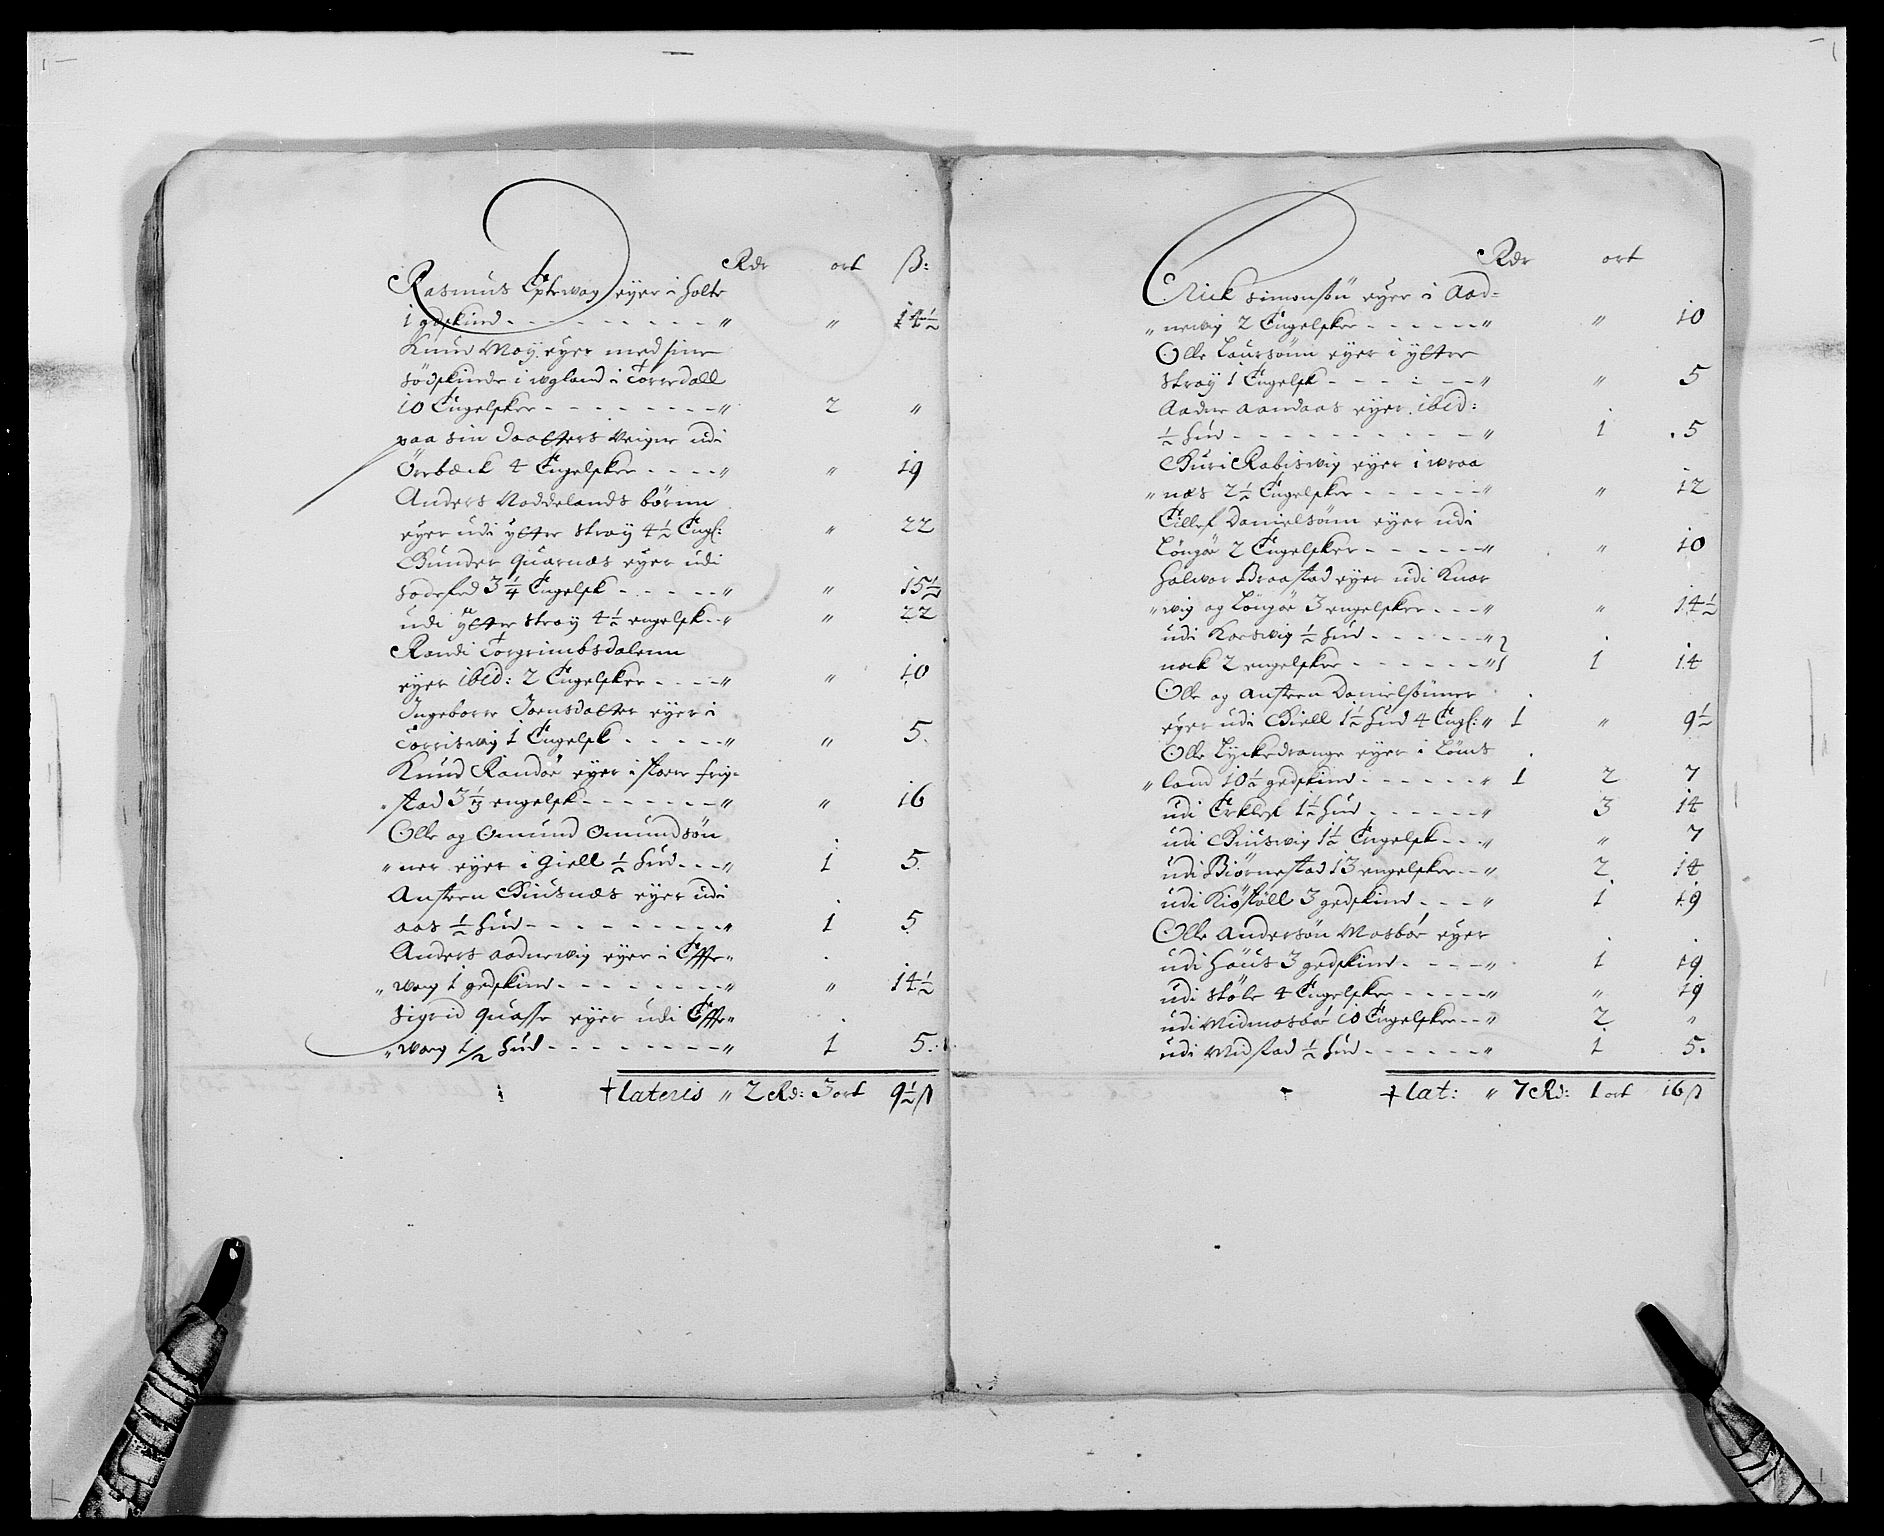 Rdr ort ß:
Rasmus Efterwog eyer i Holte
1 gedskind - - - " " 14½
Knud Moÿ eyer med sine
södskinde i Wgland i Torredall
10 Engelsker - - - " 2 "
paa sin Daatters Weigne udi
Örebæck 4 Engelsker - - - " " 19
Anders Noddelands börnn
eyer udi ytter Straÿ 4½ Engl: " 22
Gunder Quarnæs eyer udi
3¼ Engelsk - - - " " 15½
udi ÿtter Straÿ 4½ engelsk - - " " 22
Randi Torgrimbsdalenn
eyer ibid: 2 Engelsker - - - " " 10
Ingeborre Joensdatter eyer i
Torriswiig 1 Engelsk - - - " " 5
Knud Randöe eyer i store frig-
stad 3⅓ engelsk - - - " " 16
Olle og Omund Omundsön
" ner eyer i Giell ½ Hud - - - " 1 5
Ansteen Giusnæs eyer udi
aas ½ Hud - - - " 1 5
Anders Aadnewig eyer i Effte"
" wog 1 gedskind - - - " " 14½
Sigrid Quasse eyer udi Effte"
" wog 1/2 Hud - - - " 1 5
Lateris " 2 Rd: 3 ort 9½ ß
Rdr ort
Erick Simonsön eyer i Aad=
" newig 2 Engelsker - - - " " 10
Olle Laursönn eyer i ytter
Straÿ 1 Engelsk - - - " " 5
Aadne Aandaas eyer ibid:
½ Hud - - - " 1 5
Guri Rabiswig eyer i Wraa
" næs 2½ Engelsker - - - " " 12
Eillef Danielsönn eyer udi
Löngöe 2 Engelsker - - - " " 10
Halwor Braastad eyer udi Knar
" wig og Löngöe 3 engelsker - - - " " 14½
udi Korswig ½ Hud - - - "
nock 2 engelsker - - - " 1 14
Olle og Ansteen Danielsönner
eyer udi Giell 1½ Hud 4 Engl: " 1 " 9½
Olle Lyckedrange eyer i Löms
" land 10½ gedskind - - - " 1 2 7
udi Erklef 1½ Hud - - - " 3 14
udi Giuswig 1½ Engelsk - - - " " 7
udi Biörnestad 13 engelsker - - " 2 14
udi Kiöstöll 3 gedskind - - - " 1 19
Olle Andersön Mosböe eyer
udi Höüs 3 gedskind - - - " 1 19
udi Stöle 4 Engelsker - - - " " 19
udi Midmosböe 10 Engelsker - - " 2 "
udi Midstad ½ Hud - - - " 1 5
Lat: " 7 Rd: 1 ort 16 ß